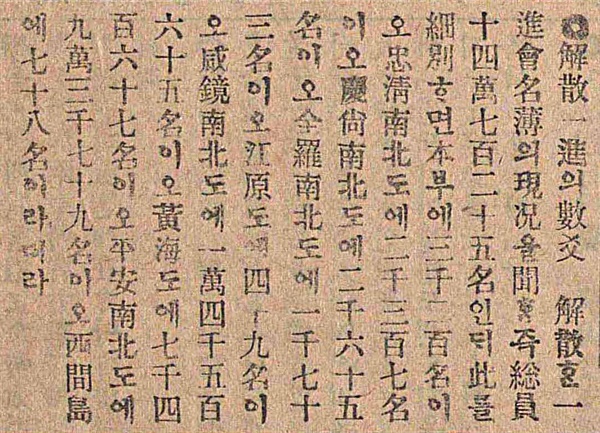 ◎解散一進의數爻 解散ᄒᆞᆫ一
進會名薄의現况을聞ᄒᆞᆫ즉総員
十四萬七百二十五名인ᄃᆡ此를
細別ᄒᆞ면本부에三千二百名이
오忠淸南北도에二千三百七名
이오慶尙南北도에二千六十五
名이오全羅南北도에一千七十
三名이오江原도에四十九名이
오咸鏡南北도에一萬四千五百
六十五名이오黃海도에七千四
百六十七名이오平安南北도에
九萬三千七十九名이오西間島
에七十八名이라더라